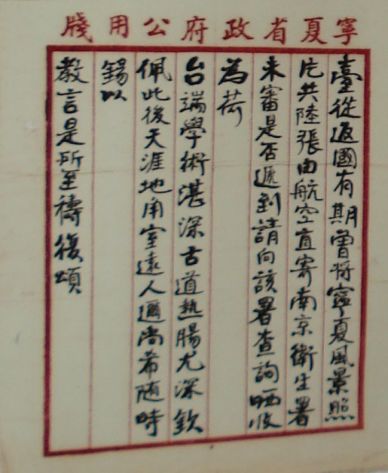 寧夏省政府公用牋
臺從返國有期曾將寧夏風景照
片共陸張由航空直寄南京衛生署
未審是否遞到請向該署查詢哂收
為荷
台端學術湛深古道熱腸尤深欽
佩此後天涯地角室遠人邇尚希隨時
錫以
教言是所至禱復頌